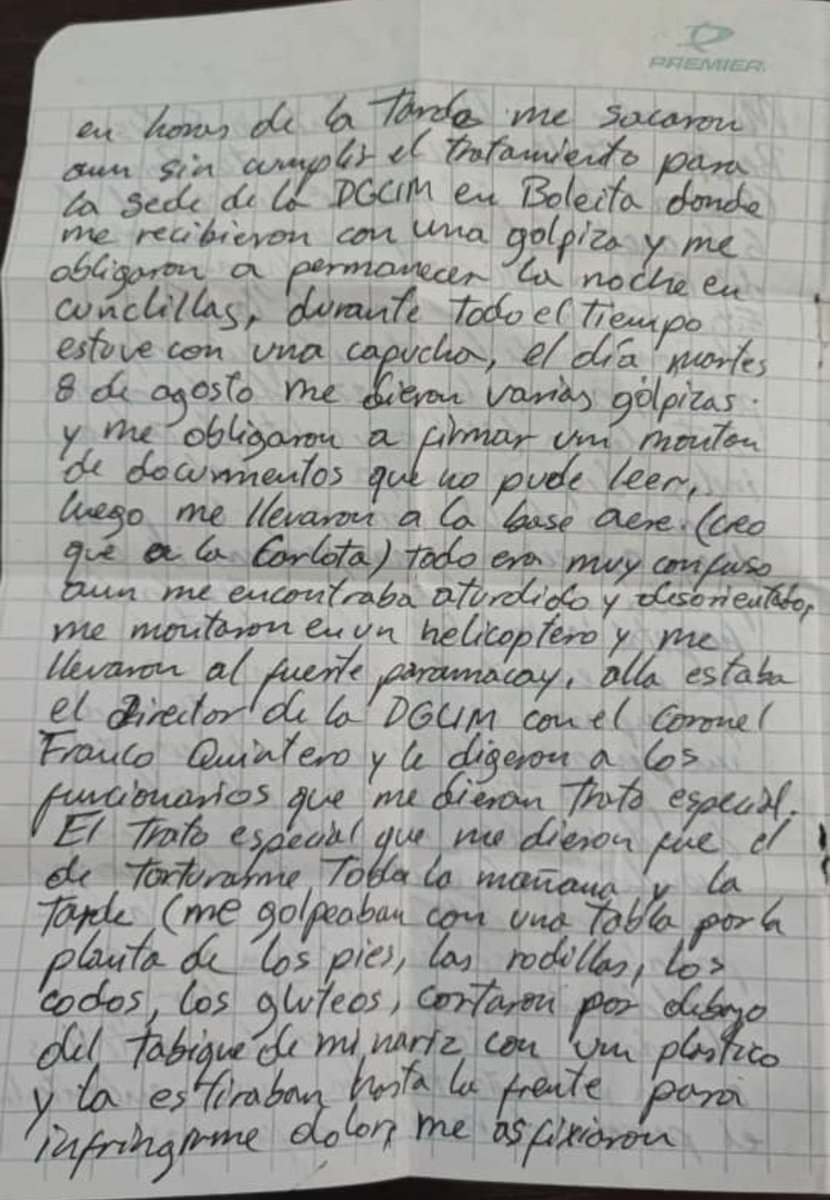 PREMIER
en horas de la Tarde me sacaron
aun sin cumplir el tratamiento para
la sede de la DGCIM en Boleita donde
me recibieron con una golpiza y me
obligaron a permanecer la noche en
cunclillas, durante todo el tiempo
estuve con una capucha, el día martes
8 de agosto me dieron varias golpizas.
y me obligaron a firmar un monton
de documentos que no pude leer,
luego me llevaron a la base aere. (creo
que a la Carlota) todo era muy confuso
aun me encontraba aturdido y desorientado,
me montaron en un helicoptero y me
llevaron al fuerte paramacay, alla estaba
el director de la DGCIM con el Coronel
Franco Quintero y le digeron a los
funcionarios que me dieran trato especial.
El trato especial que me dieron fue el
de torturarme toda la mañana y la
tarde (me golpeaban con una tabla por la
planta de los pies, las rodillas, los
codos, los gluteos, cortaron por debajo
del tabique de mi nariz con un plastico
y la estiraban hasta la frente para
infringirme dolor, me asfixiaron